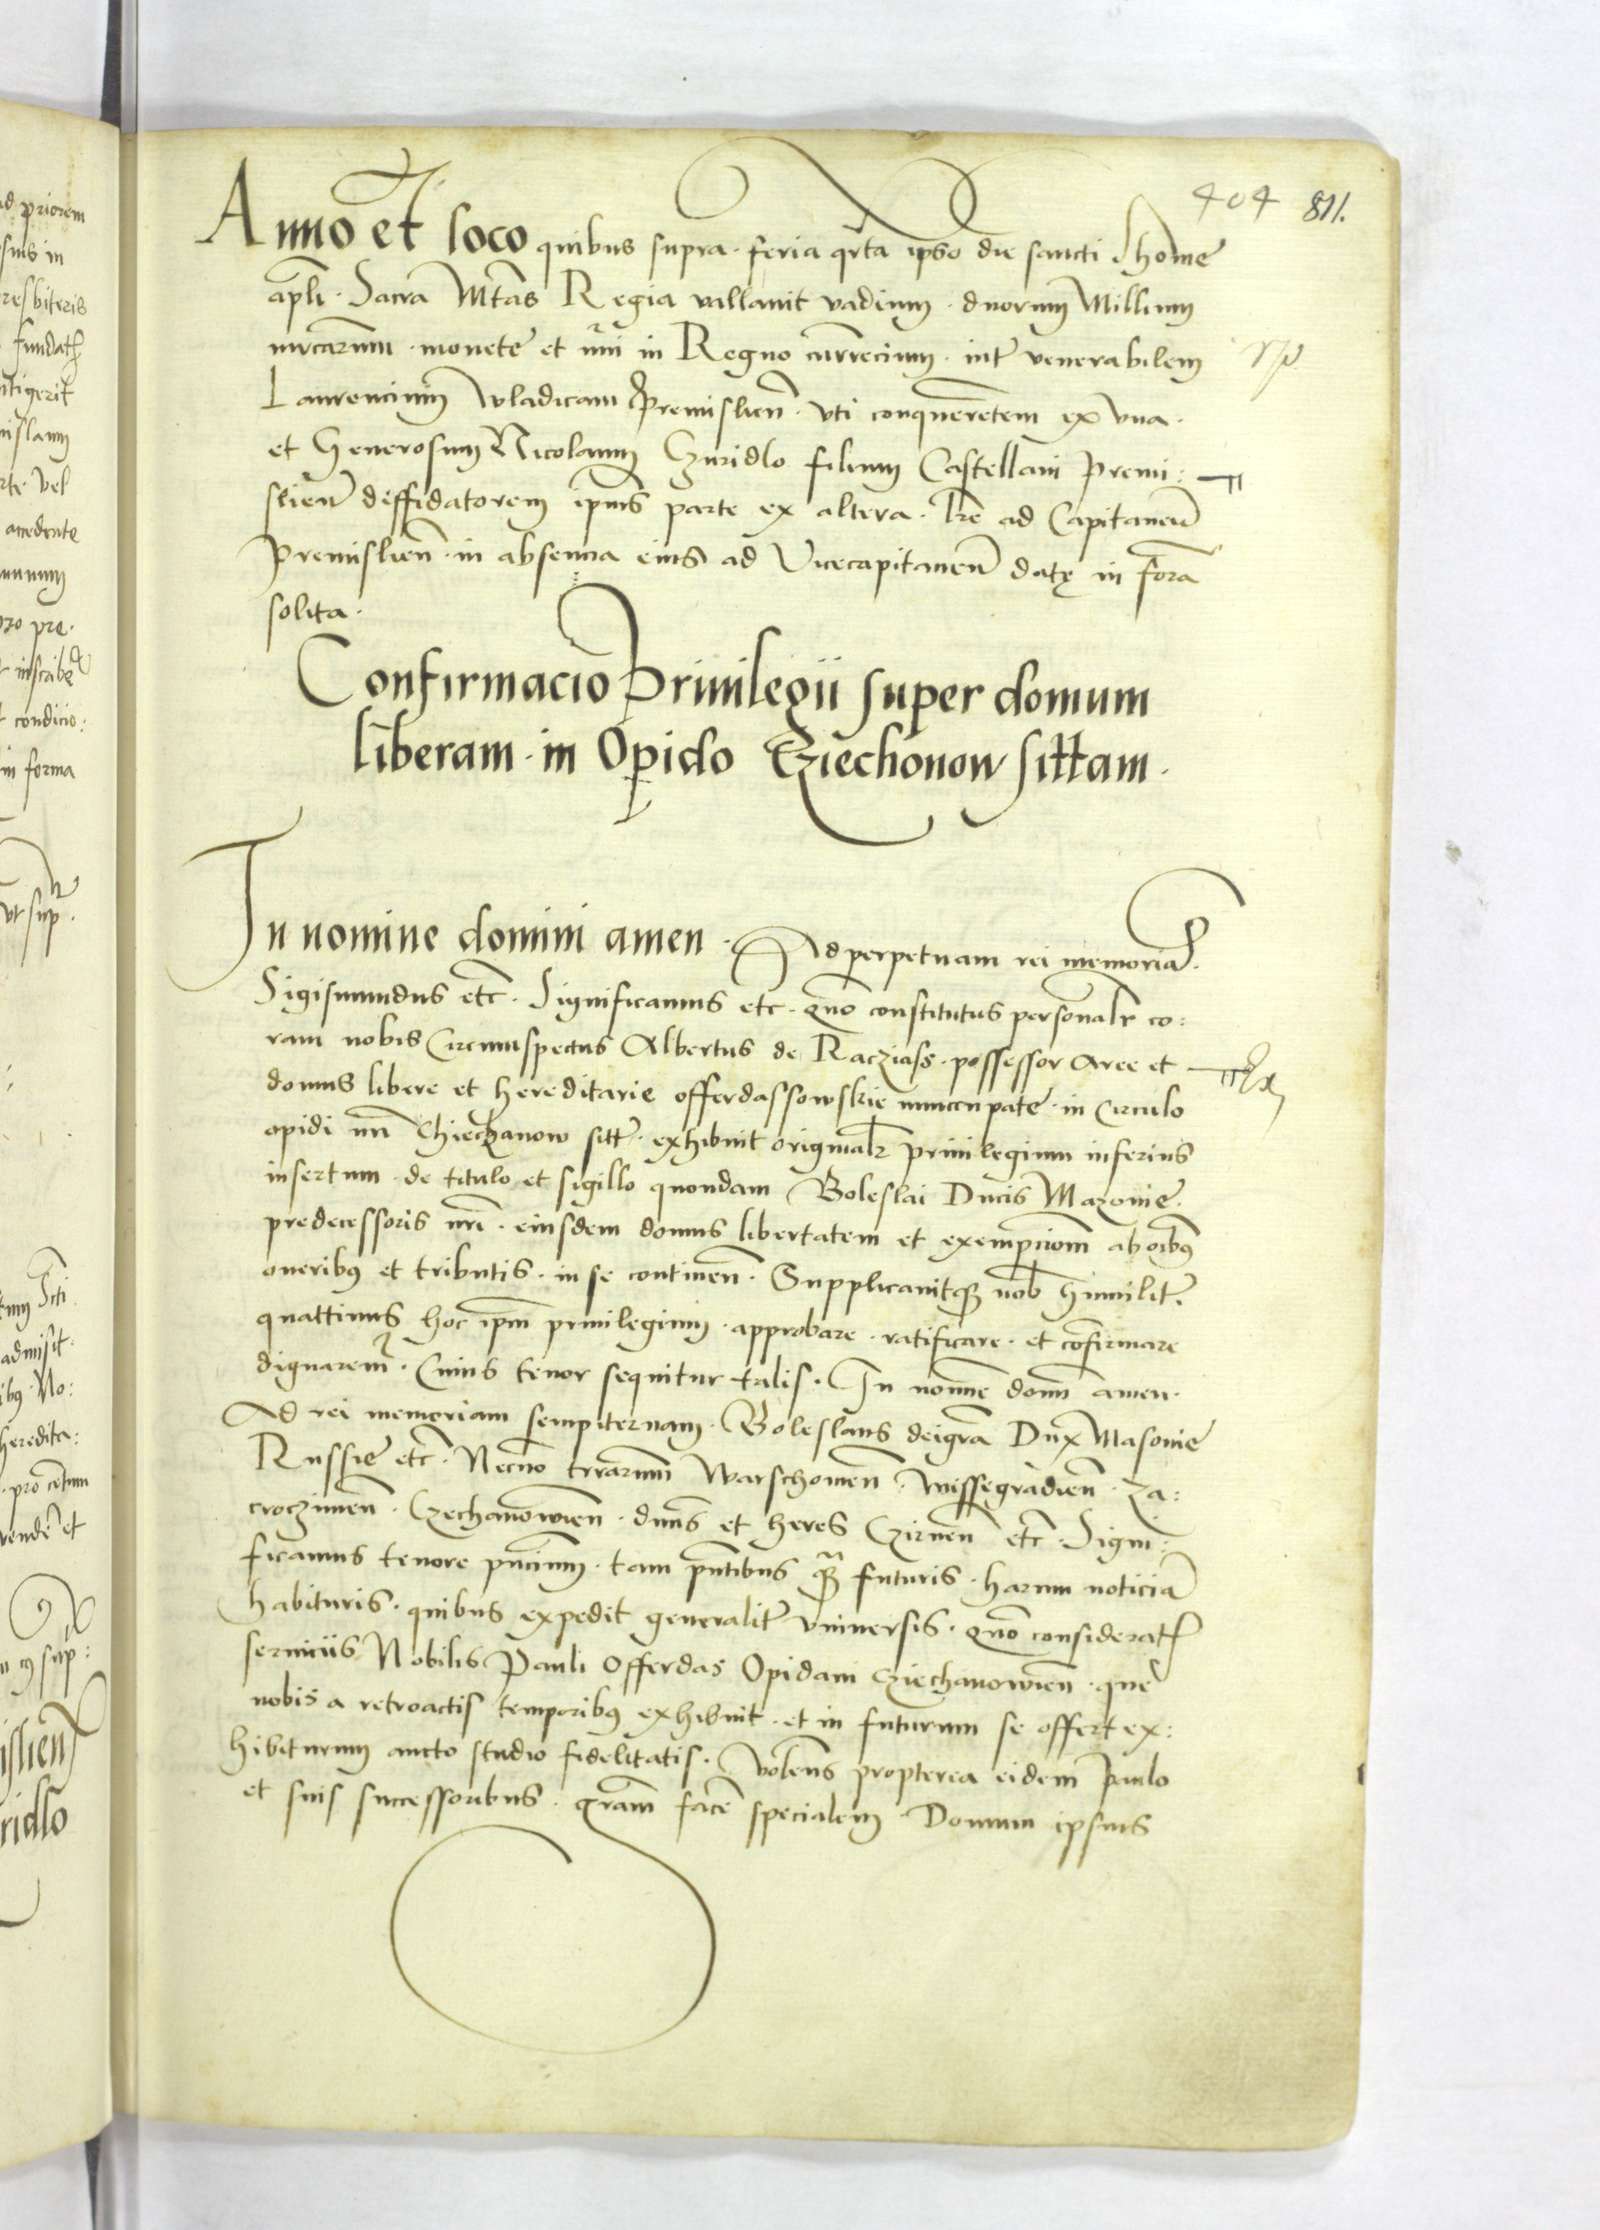 404 811.
Anno et loco quibus supra · feria qrta ipso die sancti Thome
apli · Sacra Mtas Regia vallauit vadium · duorum Millium
mrcarum · monete et nri in Regno currencium · inter venerabilem
Laurencium Wladicam Premislien · vti conquerentem ex vna ·
et Generosum Nicolaum Czuridlo filium Castellani Premi:
slien deffidatorem ipius parte ex altera · lre ad Capitaneum
Premislien · in absencia eius ad Vicecapitaneum datę in forma
solita ·
Confirmacio Priuilegii super domum
liberam · in Opido Cziechonow sittam ·
In nomine domini amen · Ad perpetuam rei memoriam ·
Sigismundus etc · Significamus etc · quo constitutus personalr co:
ram nobis Circumspectus Albertus de Racziass · possessor Aree et
domus libere et hereditarie offerdassowskie nuncupate · in Circulo
opidi nri Chiechanow sitt · exhibuit originalr priuilegium inferius
insertum · de titulo et sigillo quondam Boleslai Ducis Mazouie ·
predecessoris nri · eiusdem domus libertatem et exempcionem ab oibus
oneribus et tributis · in se continen · Supplicauitque nob humiliter ·
quattinus hoc ipm priuilegium · approbare · ratificare · et confirmare
dignaremur · Cuius tenor sequitur talis · In nomine domini amen ·
Ad rei memoriam sempiternam · Boleslaus dei gra Dux Masouie
Russie etc · Necno terrarum Warschouien · wissegradien · Za:
croczimen · Czechanowien · dnus et heres Czirnen etc · Signi:
ficamus tenore pncium · tam pntibus q futuris · harum noticiam
habituris · quibus expedit generaliter vniuersis · quo consideratis
seruiciis Nobilis Pauli Offerdas Opidani Cziechanowien · que
nobis a retroactis temporibus exhibuit · et in futurum se offert ex:
hibiturum aucto studio fidelitatis · Volens propterea eidem Paulo
et suis successoribus · gram facere specialem · Domum ipsius